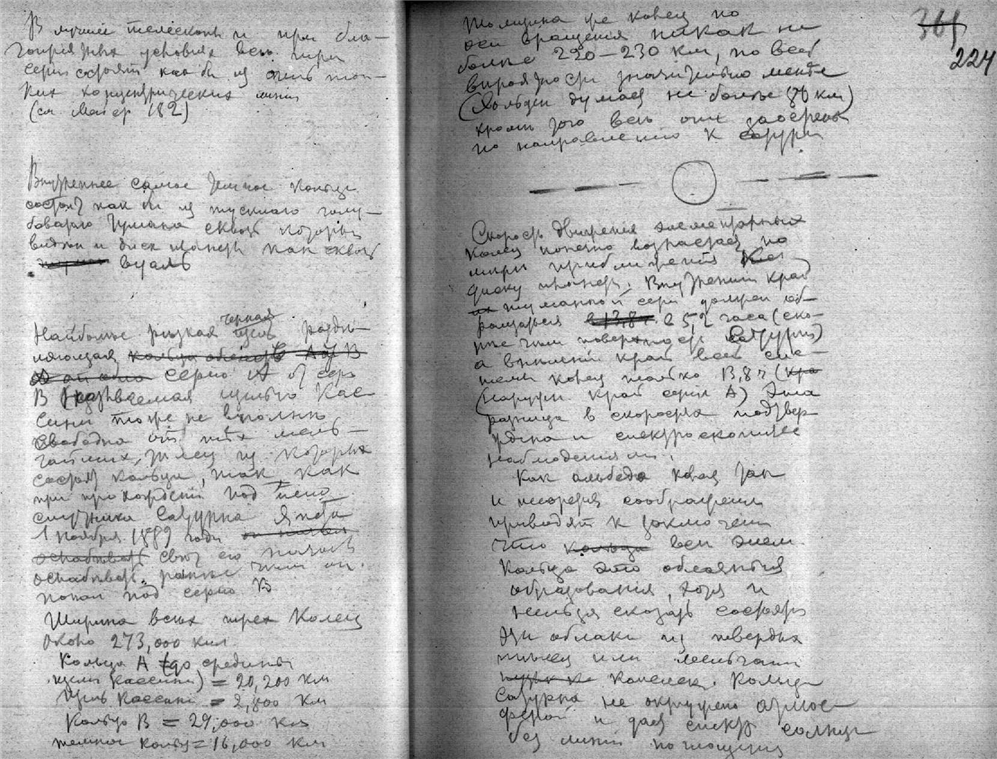 В лучшие телескопы и при бла-
гоприятных условиях все три
серии состоят как бы из очень тон-
ких концентрических линий
(см Мейер 182)
Внутреннее самое темное кольцо
состоит как бы из тусклого голу-
боватого тумана сквозь который
виден и диск планеты как сквозь
вуаль
Наиболее резкая черная щель разде-
ляющая кольца
серию А от серии
В называемая щелью Кас-
сини тоже не вполне
свободна от тех мель-
чайших, тел из которых
состоят кольца, так как
при прохождении под нею
спутника Сатурна Япета
1 ноября 1889 года
ослабевать свет его начал
ослабевать раньше чем он
попал под серию В
Ширина всех трех колец
около 273,000 км
Кольцо А (до средины
щели Кассини) = 20,200 км
Щель Кассини = 2,000 км
Кольцо В = 29,000 км
темное кольцо = 16,000 км
361
224
Толщина же колец по
оси вращения никак не
больше 220–230 км, по всей
вероятности значительно меньше
(думает не больше км)
кроме того все они заострены
по направлению к Сатурну
Скорость движения элементарных
колец конечно возрастает по
мере приближения к
диску планеты. Внутренний край
туманной серии должен об-
ращаться в 5,2 часа (ско-
рее чем поверхность Сатурна)
а внешний край всей сис-
темы колец только 13,8 ч
(наружный край серии А) Эта
разница в скоростях подтвер-
ждена и спектроскопическими
наблюдениями.
Как альбедо колец так
и теоретические соображения
приводят к заключению
что кольца всем
кольца это облачные
образования, хотя и
нельзя сказать состоят
эти облака из твердых
телец или мельчайших
капелек. Кольцо
Сатурна не окружено атмос-
ферой и дает спектр солнца
без линий поглощения